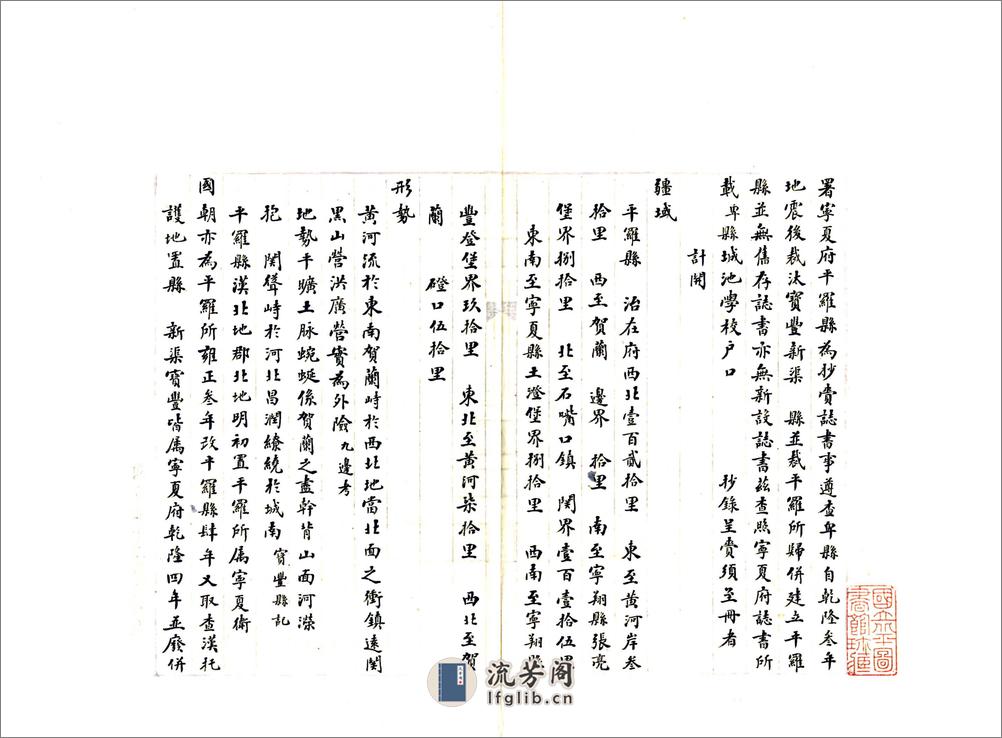 署寧夏府平羅縣為抄賫誌書事遵查卑縣自乾隆叁年
地震後裁汰寶豐新渠 縣並裁平羅所歸併建立平羅
縣並無舊存誌書亦無新設誌書茲查照寧夏府誌書所
載卑縣城池學校户口 抄錄呈賫須至冊者
計開
疆域
平羅縣 治在府西北壹百貳拾里 東至黄河岸叁
拾里 西至賀蘭 邊界 拾里 南至寧翔縣張亮
堡界捌拾里 北至石嘴口鎮 関界壹百壹拾伍里
東南至寧夏縣王澄堡界捌拾里 西南至寧翔縣
豐登堡界玖拾里 東北至黄河柒拾里 西北至賀
蘭 磴口伍拾里
形勢
黄河流於東南賀蘭峙於西北地當北面之衝鎮遠関
黒山營洪廣營實為外險九邊考
地勢平曠土脉蜿蜒係賀蘭之盡幹背山面河濚
抱 関聳峙於河北昌潤繚繞於城南寳豐縣記
平羅縣漢北地郡北地明初置平羅所属寧夏衛
國朝亦為平羅所雍正叁年改平羅縣肆年又取查漢托
護地置縣 新渠寳豐皆属寧夏府乾隆四年並廢併
國立北平圖書館珍藏
流芳阁
lfglib.cn